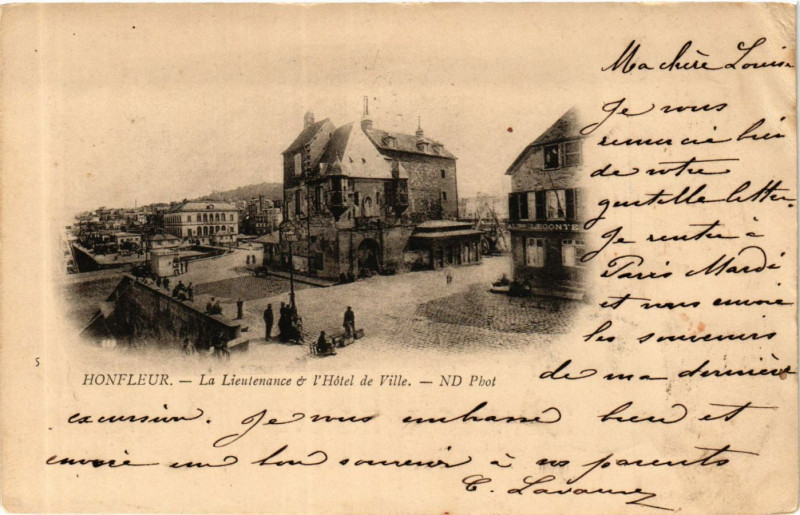 Ma chère Louise
Je vous
remercie bien
de votre
gentille lettre.
Je rentre à
Paris Mardi
et vous envoie
les souvenirs
de ma dernière
excursion. Je vous embrasse bien et
envoie un bon souvenir à vos parents
LECONTE
5
HONFLEUR. — La Lieutenance & l'Hôtel de Ville. — ND Phot